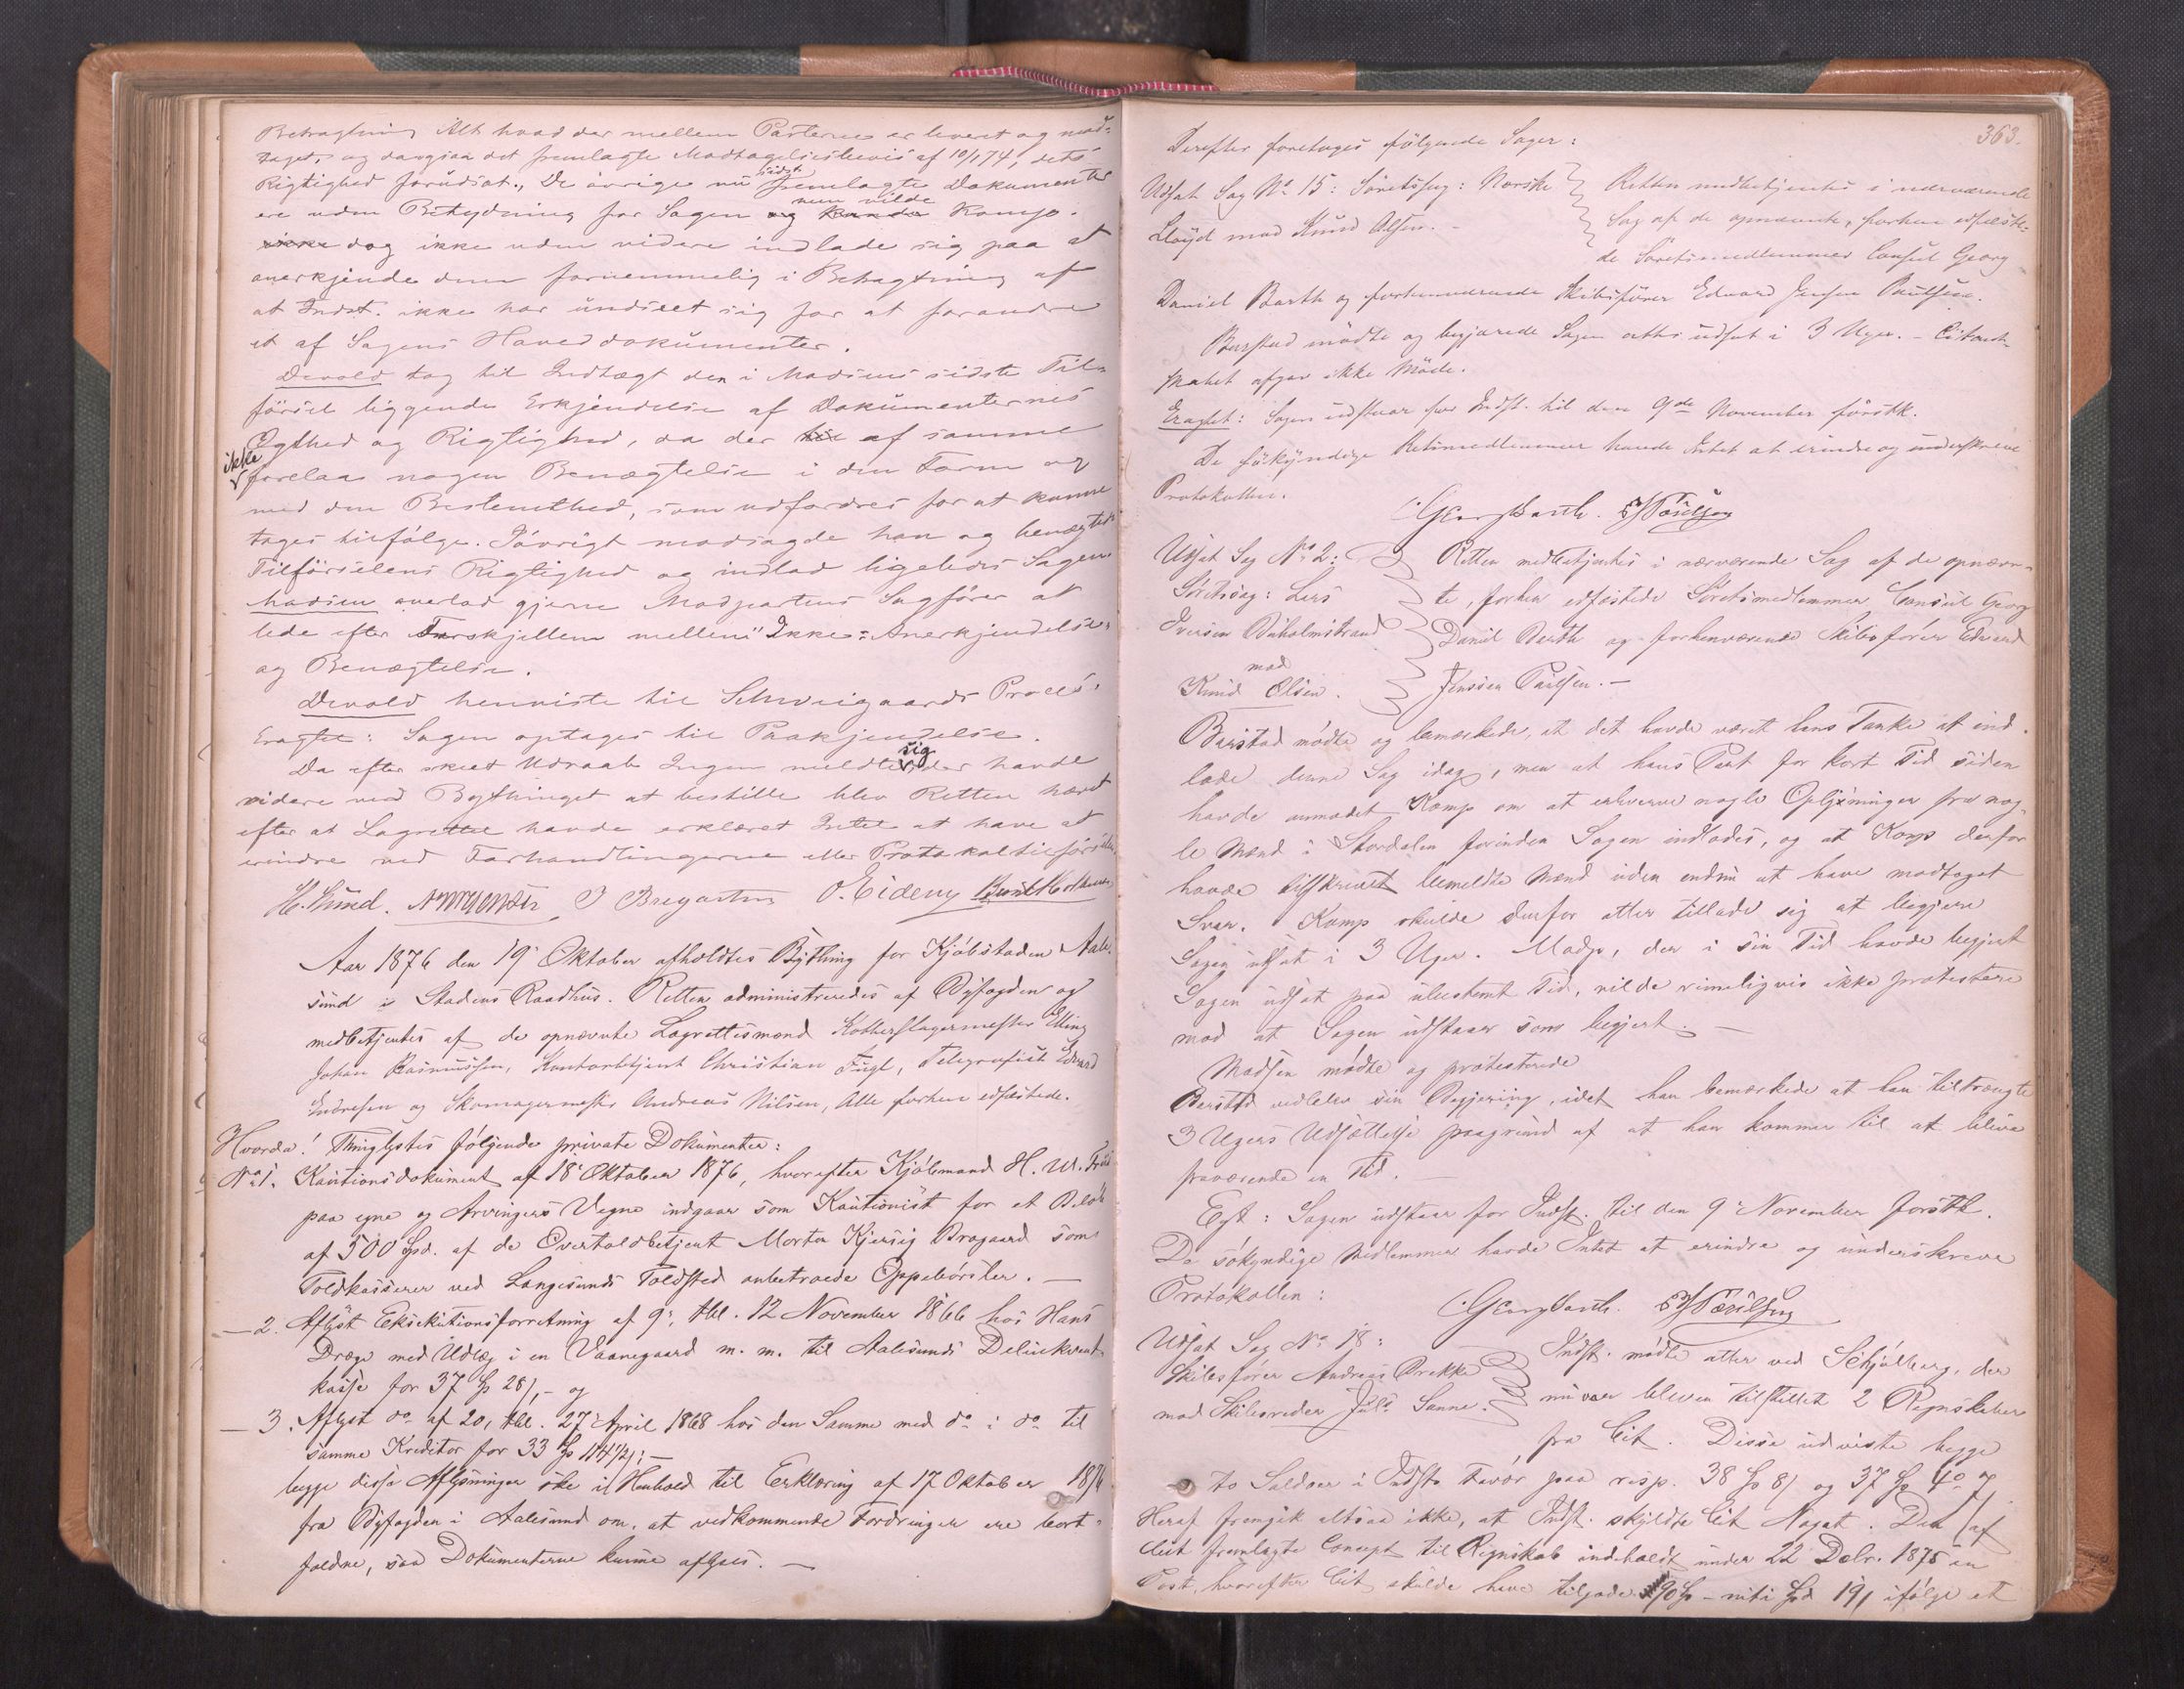 Betragtning Alt hvad der mellem Parterne er leveret og mod-
taget, og dengjæa det fremlagte Modtagelsesbevis af 10/1 74, dets
Rigtighed forudsat., De øvrige nu sidst fremlagte Dokumenter
ere uden Betydning for Sagen og kunde nem vilde Komp.
ikke dog ikke uden videre indlade sig paa at
anerkjende dem fornemmelig i Betragtning af
at Indst. ikke har undseet sig for at forandre
et af Sagens Hoveddokumenter.
Devold tog til Indtægt den i Madsens sidste Til-
førsel liggende Erkjendelse af Dokumenternes
Ægthed og Rigtighed, da der af samme
ikke forelaa nogen Benægtelse i den Form og
med den Bestemthed, som udfordres for at kunne
tages tilfølge. Iøvrigt modsagde han og benægtede
Tilførselens Rigtighed og indlod ligeledes Sagen
Madsen overlod gjerne Modpartens Sagfører at
lede efter Forskjellem mellem "Ikke-Anerkjendelse"
og Benægtelse.
Devold henviste til Schweigaards Proces.
Eragtet: Sagen optages til Paakjendelse.
Da efter skeet Udraab Ingen meldte sig der havde
videre ved Bythinget at bestille blev Retten hævet
efter at Lagrettet havde erklæret Intet at have at
erindre ved Forhandlingerne eller Protokoltilførslen.
H. Lund. J Bregartner O. Eideny
Aar 1876 den 19de Oktober afholdtes Bything for Kjøbstaden Aale-
sund i Stadens Raadhus. Retten administreredes af Byfogden og
medbetjentes af de opnævnte Lagrettesmænd Kobberslagermester Elling
Johan Rasmussen, Kontorbetjent Christian Fugl, Telegrafist Edvard
Endresen og Skomagermester Andreas Nilsen, Alle forhen edfæstede.
Hvorda! Thinglystes følgende private Dokumenter:
No 1. Kautionsdokument af 18de Oktober 1876, hvorefter Kjøbmand H. M.
paa egne og Arvingers Vegne indgaar som Kautionist for et Beløb
af 500 Spd. af de Overtoldbetjent Morten Kjersig Brogaard som
Toldkasserer ved Langesunds Toldsted anbetroede Oppebørsler. —
— 2. Aflyst Eksekutionsforretning af 9de, thl. 12 November 1866 hos Hans
Drage med Udlæg i en Vaanegaard m. m. til Aalesunds Delinkvent-
kasse for 37 Sp 28 /, - og
— 3. Aflyst do af 20, thl. 27 April 1868 hos den Samme med do i do til
samme Kreditor for 33 Sp 114 1/2 /; —
begge disse Aflysninger ske i Henhold til Erklæring af 17 Oktober 1876
fra Byfogden i Aalesund om, at vedkommende Fordringer ere bort-
faldne, saa Dokumenterne kunne aflyses. —
363.
Derefter foretoges følgende Sager:
Udsat Sag No 15: Søretssag: Norske
Lloyd mod Knud Olsen. —
Retten medbetjentes i nærværende
Sag af de opnævnte, forhen edfæste-
de Søretsmedlemmer Consul Georg
Daniel Barth og forhenværende Skibsfører Edvard Jensen Paulsen.
Barstad mødte og begjærede Sagen atter udsat i 3 Uger. — Citant-
skabet afgav ikke Møde.
Eragtet: Sagen udstaar for Indst. til den 9de November førstk.
De søkyndige Retsmedlemmer havde Intet at erindre og underskreve
Protokollen.
Georg Barth. E J Paulsen
Udsat Sag No 2:
Søretssag: Lars
Iversen Buholmstrand
mod
Knud Olsen.
Retten medbetjentes i nærværende Sag af de opnævn-
te, forhen edfæstede Søretsmedlemmer Consul Georg
Daniel Barth og forhenværende Skibsfører Edvard
Jensen Paulsen. —
Barstad mødte og bemærkede, at det havde været hans Tanke at ind-
lade denne Sag idag, men at hans Part for kort Tid siden
havde anmodet Komp om at erhverve nogle Oplysninger fra nog-
le Mænd i Stordalen forinden Sagen indlodes, og at Komp derfor
havde tilskrevet bemeldte Mænd uden endnu at have modtaget
Svar. Komp skulde derfor atter tillade sig at begjære
Sagen udsat i 3 Uger. Madp, der i sin Tid havde begjært
Sagen udsat paa ubestemt Tid, vilde rimeligvis ikke protestere
mod at Sagen udstaaer som begjert. —
Madsen mødte og protesterede
Barstad vedblev sin Begjering, idet han bemærkede at han tiltrængte
3 Ugers Udsættelse paagrund af at han kommer til at blive
fraværende en Tid. —
Egt: Sagen udstaar for Indst. til den 9de November førstk.
De søkyndige Medlemmer havde Intet at erindre og underskreve
Protokollen:
Georg Barth. E J Paulsen
Udsat Sag No 18:
Skibsfører Andreas Brekke
mod Skibsreder Juls Sanne.
Indst. mødte atter ved Schjølberg, der
nu var bleven tilstillet 2 Regnskaber
fra Cit. Disse udviste begge
to Saldoer i Indsts Favør paa resp. 38 Sp 8 / og 37 Sp 40 /
Heraf fremgik altsaa ikke, at Indst. skyldte Cit Noget. Det af
Cit fremlagte Concept til Regnskab indeholdt under 22 Debr. 1875 en
Post, hvorefter Cit skulde have tilgode 90 Sp - niti Spd 19 / ifølge et